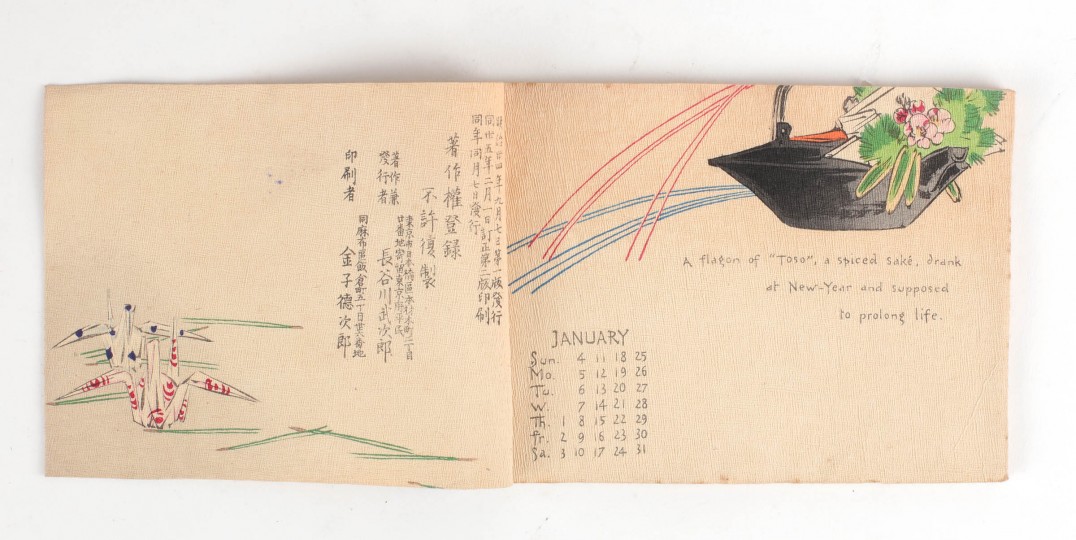 明治廿四年九月七日第一版發行
同卅五年二月一日訂正第二版印刷
同年同月七日發行
著作權登録
不許復製
著作兼
發行者
東京市日本橋區本材木町二丁目
廿番地寄留東京府平民
長谷川武次郎
印刷者
同麻布區飯倉町五丁目 番地
金子德次郎
A flagon of "Toso", a spiced saké, drank
at New-Year and supposed
to prolong life.
JANUARY
Sun. 4 11 18 25
Mo. 5 12 19 26
Tu. 6 13 20 27
W. 7 14 21 28
Th. 1 8 15 22 29
Fr. 2 9 16 23 30
Sa. 3 10 17 24 31